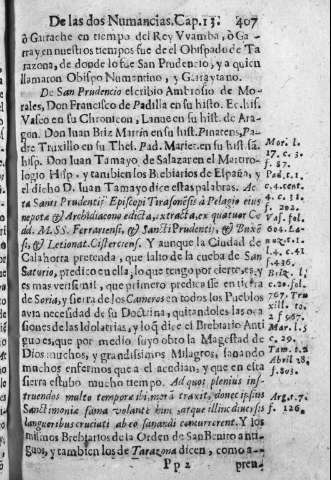 De las dos Numancias. Cap. 13. 407
ò Garrache en tiempo del Rey Vvamba, ò Ga-
rray en nuestros tiempos fue de el Obispado de Ta
razona, de donde lo fue San Prudencio, y a quien
llamaron Obispo Numantino, y Garraytano.
De San Prudencio escribio Ambrosio de Mo-
rales, Don Francisco de Padilla en su histo. Ec. his.
Vaseo en su Chronicon, Lanue en su hist. de Ara-
gon. Don Iuan Briz Martin en su hist. Pinatens, Pa-
dre Truxillo en su Thes. Pad. Marier. en su hist. sã.
hisp. Don Iuan Tamayo de Salazar en el Martiro-
logio Hisp. y tambien los Brebiarios de España, y
el dicho D. Iuan Tamayo dice estas palabras. Ac
ta Sancti Prudentij Episcopi Tirasonesis à Pelagio eius
nepote & Archidiacono edicta, extracta, ex quatuor Co
dd. M.SS. Ferrariensi, & Sancti Prudentij, & Buxē
si, & Letionat. Cisterciens. Y aunque la Ciudad de
Calahorra pretenda, que salio de la cueba de San
Saturio, predico en ella, lo que tengo por cierto es, y
es mas verisimil, que primero predicasse en tierra
de Soria, y sierra de los Cameros en todos los Pueblos
avia necesidad de su Doctrina, quitandoles las oca
siones de las Idolatrias, y lo q̃ dice el Brebiario Anti
guo es, que por medio suyo obto la Magestad de
Dios muchos, y grandissimos Milagros, sanando
muchos enfermos que a el acodian, y que en esta
sierra estubo mucho tiempo. Ad quos plenius ins-
truendos multo tempore ibi morã traxit, donec ipsius
Sanctimoniæ fama volante hinc, atque illinc diversis
languoribus cruciati ab eo sanandi concurrerent. Y los
mismos Brebiarios de la Orden de San Benito anti-
guos, y tambien los de Tarazona dicen, como a-
Pp 2 pren-
Mor. l.
17. c. 3.
f. 87.
Pad. t. 1.
c. 4. cent.
4. c. 31.
f. 202.
Vas. fol.
604. La-
nuz. t. 1.
l. 4. c. 41
f. 436.
Briz. l.
c. 20. fol.
767. Tru
xill. to.
2 f 967.
Mar. l. 5
c. 29.
Tam. t. 2
Abril 28.
f. 803.
Arg. t. 7.
f. 126.